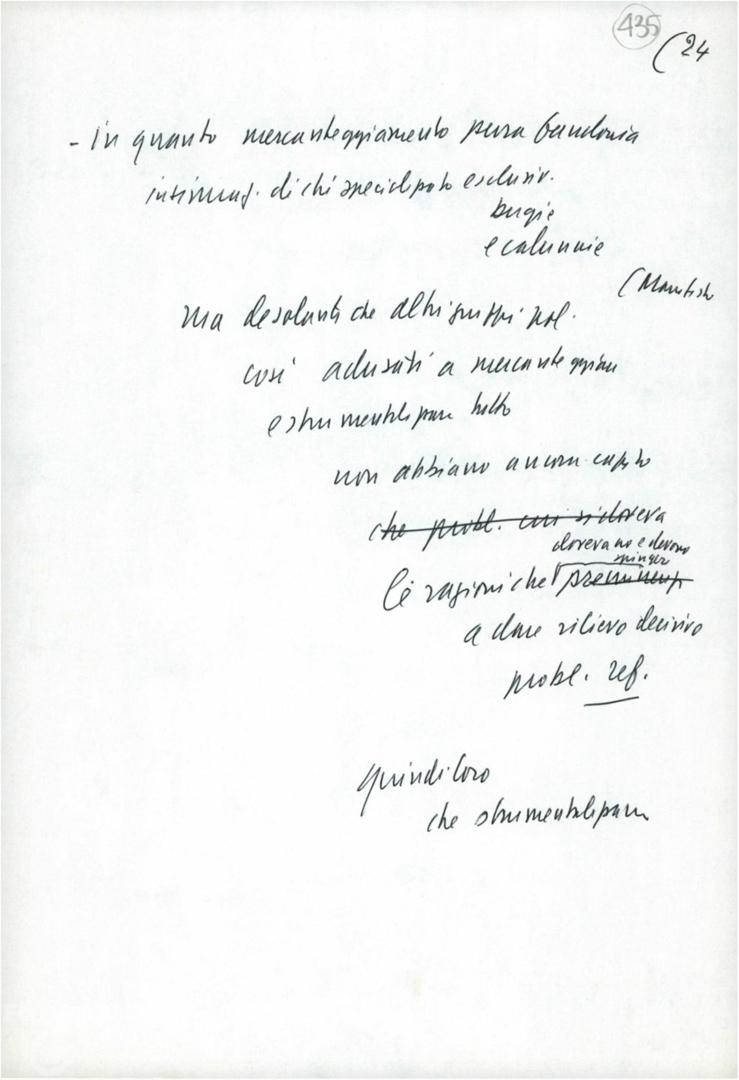 435
(24
- In quanto mercanteggiamento pura fandonia
insinuaz. di chi specializzato esclusiv.
bugie
e calunnie
(Manifesto
ma desolante che altri gruppi pol.
così adusati a mercanteggiare
e strumentalizzare tutto
non abbiano ancora capito
che probl. cui si doveva
dovevano e devono
spinger
le ragioni che premevano
a dare rilievo decisivo
probl. ref.
quindi loro
che strumentalizzare